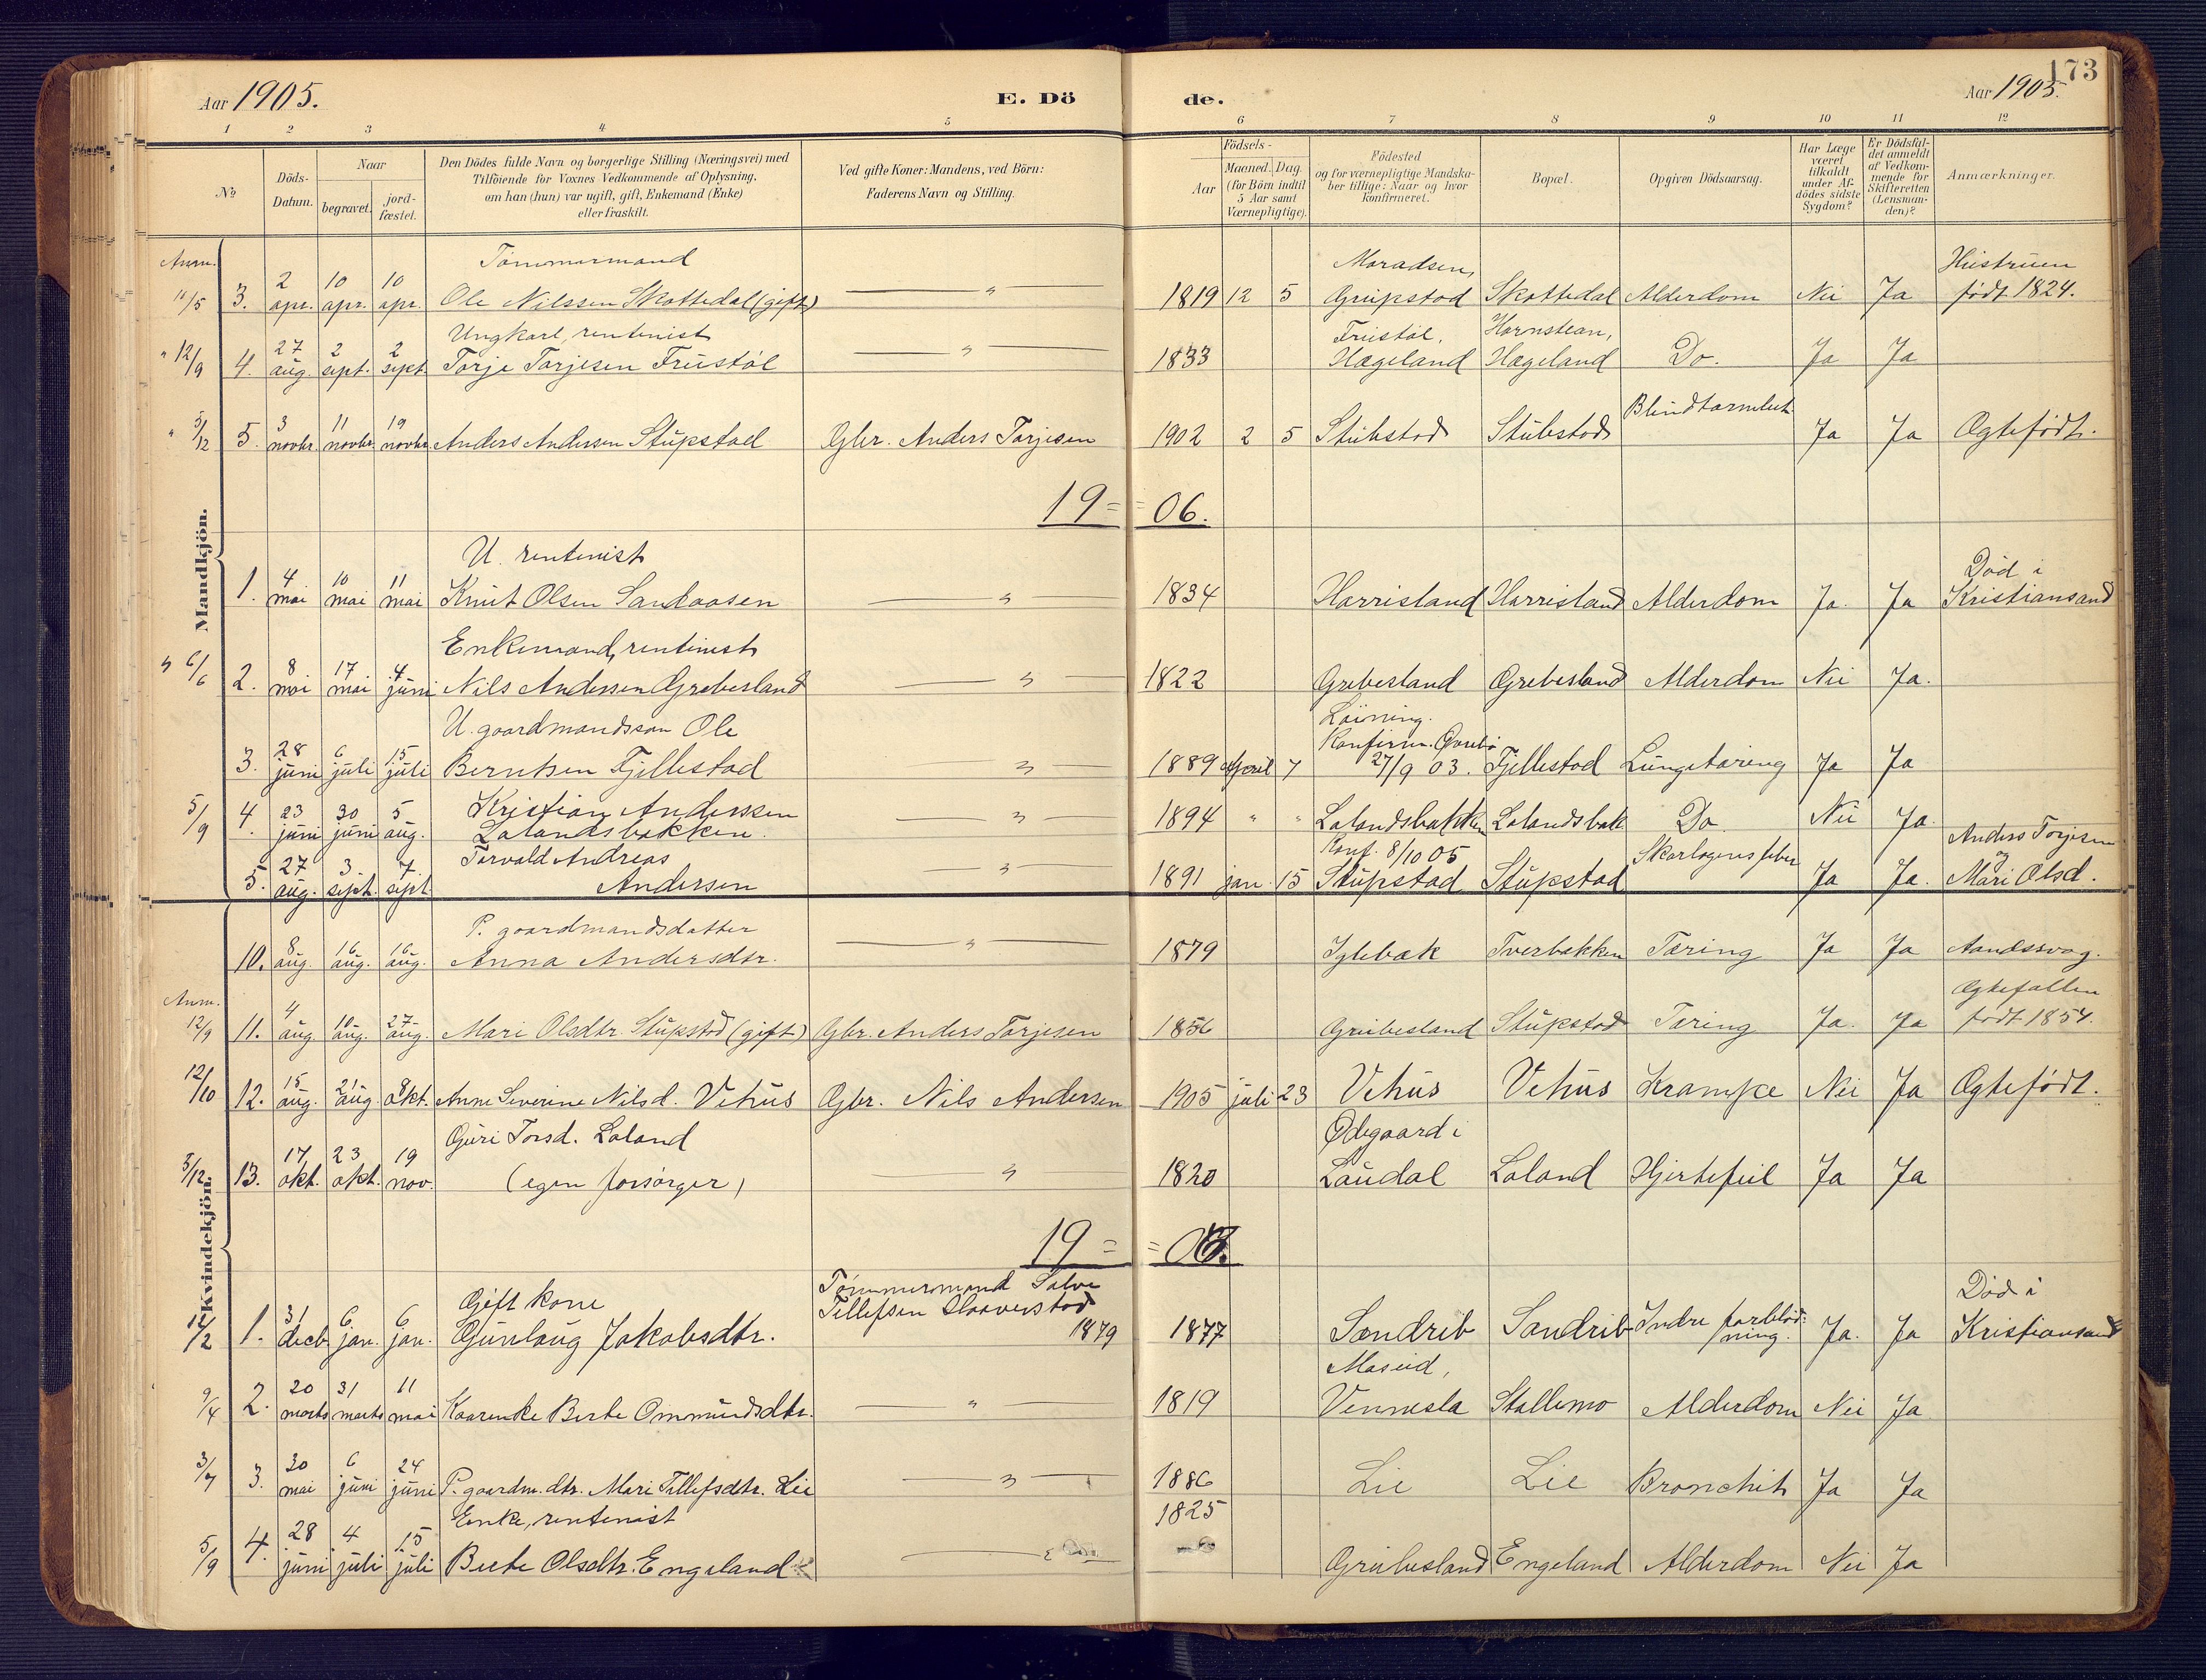 173
Aar 1905.
E. Dö
de.
Aar 1905.
1 2 3 4 5 6 7 8 9 10 11 12
No
Döds-Datum.
Naar
begravet.
jord-fæstet.
Den Dödes fulde Navn og borgerlige Stilling (Næringsvei) med
Tilföiende for Voxnes Vedkommende af Oplysning,
om han (hun) var ugift, gift, Enkemand (Enke)
eller fraskilt.
Ved gifte Koner: Mandens, ved Börn:
Faderens Navn og Stilling.
Födsels-
Aar
Maaned. Dag.
(for Börn indtil
5 Aar samt
Værnepligtige).
Födested
og for værnepligtige Mandska-
ber tillige: Naar og hvor
konfirmeret.
Bopæl.
Opgiven Dödsaarsag.
Har Læge
været
tilkaldt
under Af-
dödes sidste
Sygdom?
Er Dödsfal-
det anmeldt
af Vedkom-
mende for
Skifteretten
(Lensman-
den)?
Anmærkninger.
Mandkjön.
Anm. Tømmermand Hustruen
11/5 3. 2 apr. 10 apr. 10 apr. Ole Nilssen Skottedal (gift) — " — 1819 12 5 Grupstod Skottedal Alderdom Nei Ja født 1824.
Ungkarl, rentenist Frustøl, Hornstean,
" 12/9 4. 27 aug. 2 sept. 2 sept. Torje Torjesen Frustøl — " — 1833 Hægeland Hægeland Do. Ja Ja
" 5/12 5. 3 novbr. 11 novbr. 19 novbr. Anders Andersen Stupstad Gbr. Anders Torjesen 1902 2 5 Stubstod Stubstod Ja Ja Ægtefødt.
19 = = 06.
U. rentenist Død i
1. 4 mai 10 mai 11 mai Knut Olsen — " — 1834 Harrisland Harrisland Alderdom Ja. Ja Kristiansand
Enkemand, rentenist
" 6/6 2. 8 mai 17 mai 4 juni Nils Andersen Grebesland — " — 1822 Grebesland Grebesland Alderdom Nei Ja.
U. gaardmandssøn Ole Løining. Konfirm. Øvrebø
3. 28 juni 6 juli 15 juli Berntsen Fjellestad — " — 1889 April 7 27/9 03. Fjellestad Lungetæring Ja Ja
5/9 4. 23 juni 30 juni 5 aug. Kristian Anderssen Lalandsbakken. — " — 1894 " " Lalandsbakken Lalandsbak Do Nei Ja.
Torvald Andreas Konf. 8/10 05 Skarlagensfeber Anders Torjesen og
5. 27 aug. 3. sept. 7. sept Andersen — " — 1891 jan. 15 Stupstad Stupstad Ja Ja. Mari Olsd.
Kvindekjön.
P. gaardmandsdatter
10. 8 aug. 16 aug. 16 aug. Anna Andersdtr. — " — 1879 Iglebæk Tverbakken Tæring Ja Ja Aandssvag.
Anm. Ægtefællen
12/9 11. 4 aug. 10 aug. 27 aug. Mari Olsdtr. Stupstød (gift) Gbr. Anders Torjesen 1856 Grubesland Stupstad Tæring Ja. Ja født 1854.
12/10 12. 15 aug. 21 aug 8 okt. Anne Severine Nilsd. Vehus Gbr. Nils Andersen 1905 juli 23 Vehus Vehus Krampe Nei Ja Ægtefødt.
Guri Torsd. Laland Ødegaard i
5/12 13. 17 okt. 23 okt. 19 nov. (egen forsørger) — " — 1820 Laudal Laland Hjertefeil Ja Ja
19 = = 06.
Gift kone Tømmermand Salve Tellefsen Død i
12/2 1. 31 decb. 6 jan. 6 jan. Gunlaug Jakobsdtr. 1879 1877 Sandrib Sandrib Indre forblødning. Ja. Ja Kristiansand
Moseid,
9/4 2. 20 marts 31 marts 11 mai Kaarenke Berte Ommundsdtr. — " — 1819 Vennesla Stallemo Alderdom Nei Ja
3/7 3. 30 mai 6 juni 24 juni P. gaardm. dtr. Mari Tellefsdtr. Lie — " — 1886 Lie Lie Bronchit Ja Ja
Enke, rentenist 1825
5/9 4. 28 juni 4 juli 15 juli Berte Olsdtr. Engeland Grubesland Engeland Alderdom Nei Ja